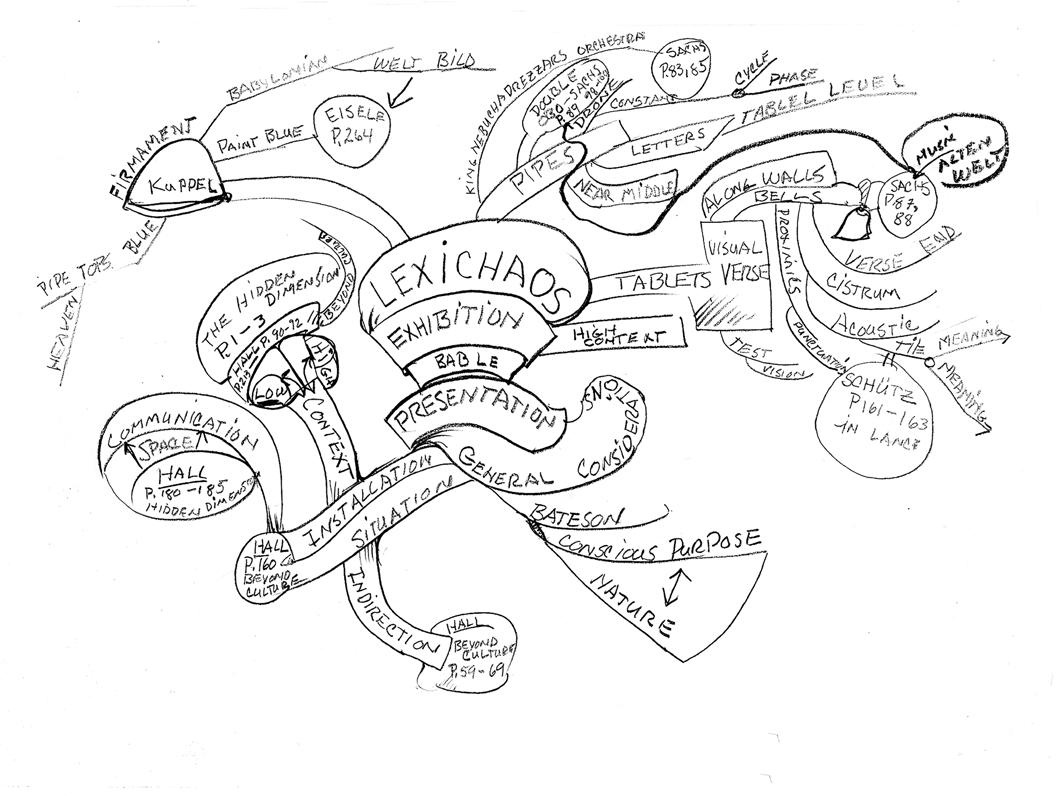 BABYLONIAN
WELT BILD
FIRMAMENT
KUPPEL
PAINT BLUE
EISELE
P.264
PIPE TOPS BLUE
HEAVEN
KING NEBUCHADREZZARS ORCHESTRA
SACHS
P.83,85
DOUBLE
OBO-SACHS
P.89 98-100
DRONE
CONSTANT
CYCLE
PHASE
PIPES
LETTERS
TABLEL LEVEL
NEAR MIDDLE
LEXICHAOS
EXHIBITION
BABLE
PRESENTATION
TABLETS
VISUAL
VERSE
TEST
VISION
HIGH
CONTEXT
ALONG WALLS
BELLS
SACHS
P.87,
88
MUSIK
ALTEN
WELT
VERSE END
CISTRUM
PROXIMITIES
ACOUSTIC
PUNCTUATION
TIE MEANING
MEANING
SCHÜTZ
P161-163
IN LANCE
THE HIDDEN
DIMENSION
P.1-3
HALL P. 90-92
P.213
BEYOND CULTURE
LOW
HIGH
CONTEXT
COMMUNICATION
SPACE
HALL
P.180-185
HIDDEN DIMENSION
INSTALLATION
SITUATION
HALL
P.160
BEYOND
CULTURE
INDIRECTION
HALL
BEYOND
CULTURE
P.59-69
GENERAL CONSIDERATIONS
BATESON
CONSCIOUS PURPOSE
NATURE